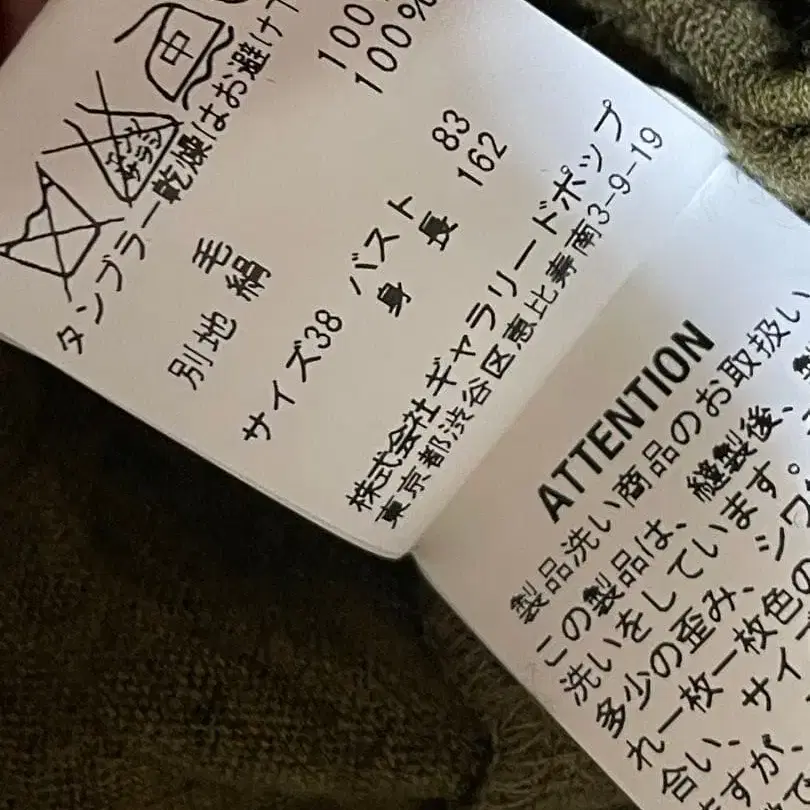 中
エンソ
サラシ
タンブラー乾燥はお避け下
毛 100
別地 絹 100%
サイズ38 バスト 83
身長 162
株式会社ギャラリードポップ
東京都渋谷区恵比寿南3-9-19
ATTENTION
製品洗い商品のお取扱い
この製品は、縫製後、製
洗いをしています。
多少の歪み、シワ
れ一枚一枚色の
合い、サイズ
ますが、